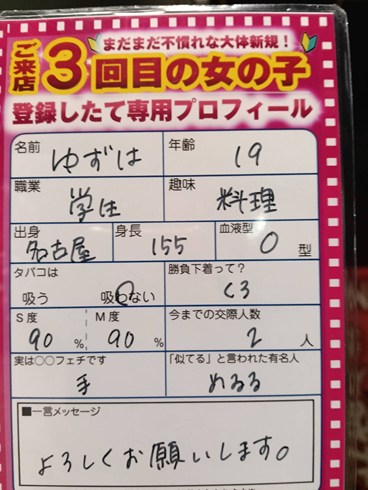 まだまだ不慣れな大体新規！
ご来店3回目の女の子
登録したて専用プロフィール
名前 ゆずは 年齢 19
職業 学生 趣味 料理
出身 名古屋 身長 155 血液型 O型
タバコは 勝負下着って？
吸う 吸わない くろ
S度 M度 今までの交際人数
90% 90% 2人
実は○○フェチです 「似てる」と言われた有名人
手 めるる
■一言メッセージ
よろしくお願いします。